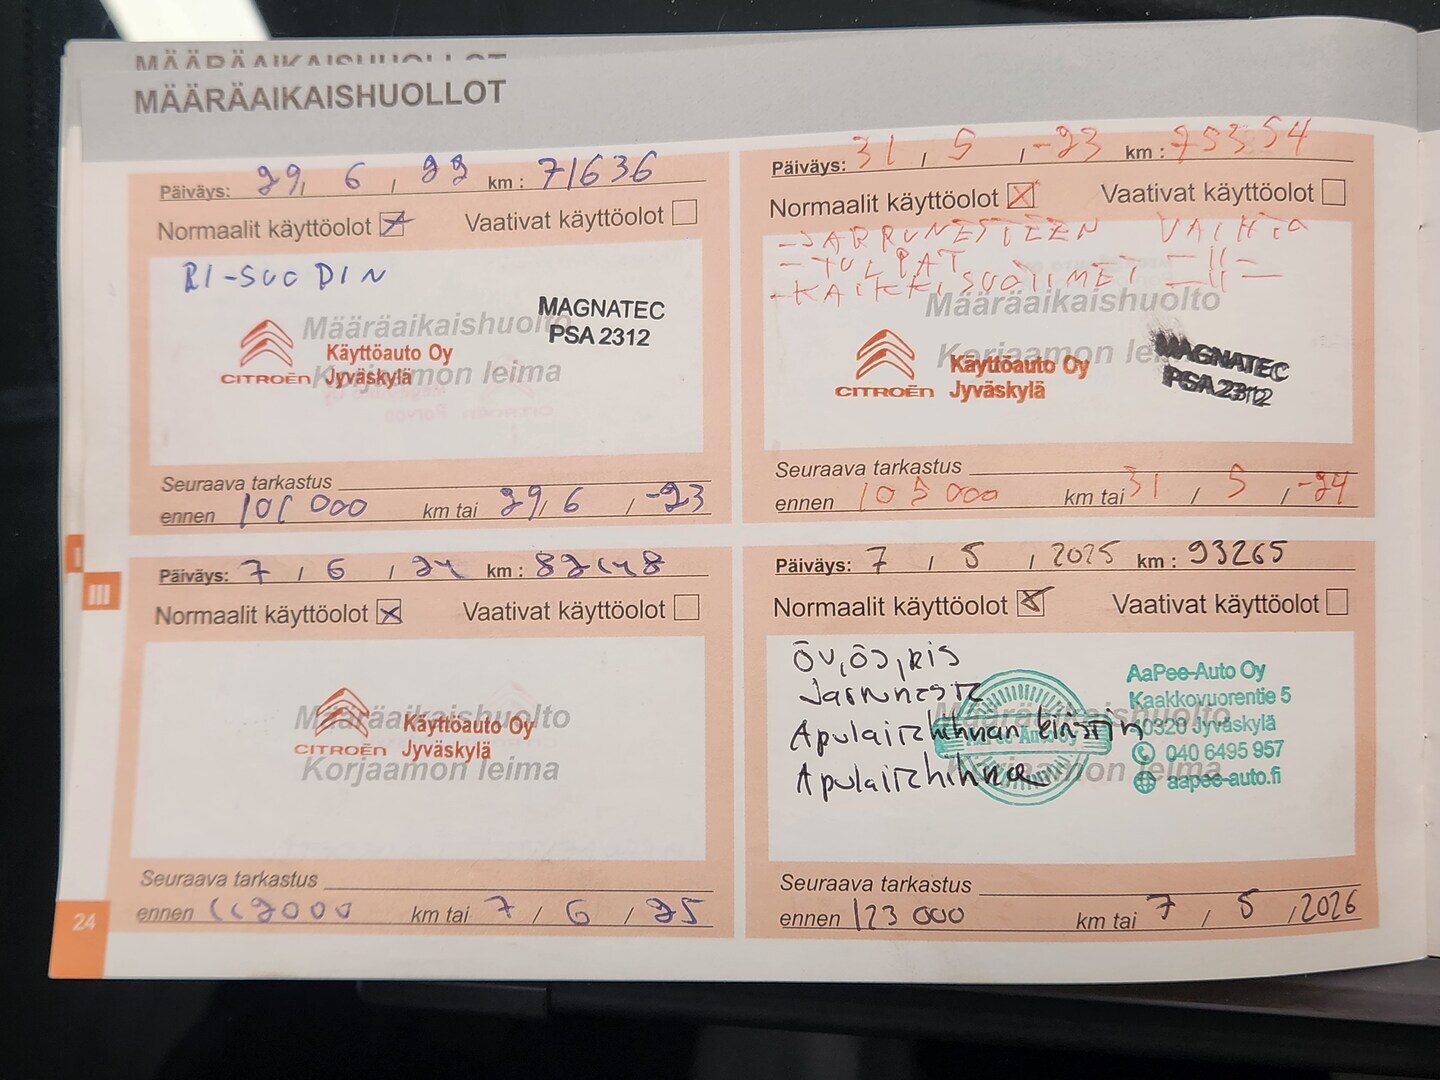 MÄÄRÄAIKAISHUOLLOT
MÄÄRÄAIKAISHUOLLOT
Päiväys: 29, 6 , 22 km : 71636
Normaalit käyttöolot Vaativat käyttöolot
RI-SUODIN
MAGNATEC
PSA 2312
Määräaikaishuolto
Korjaamon leima
CITROËN
Käyttöauto Oy
Jyväskylä
Seuraava tarkastus
ennen 101 000 km tai 29, 6 , -23
Päiväys: 31 , 5 , -23 km : 75354
Normaalit käyttöolot Vaativat käyttöolot
-JARRUNESTEEN VAIHTO
-TULPAT -||-
-KAIKKI SUOTIMET -||-
Määräaikaishuolto
Korjaamon leima
CITROËN
Käyttöauto Oy
Jyväskylä
MAGNATEC
PSA 2312
Seuraava tarkastus
ennen 105 000 km tai 31 , 5 , -24
I
III
Päiväys: 7 , 6 , 24 km :
Normaalit käyttöolot Vaativat käyttöolot
Määräaikaishuolto
Korjaamon leima
CITROËN
Käyttöauto Oy
Jyväskylä
Seuraava tarkastus
ennen 112000 km tai 7 , 6 , 25
Päiväys: 7 , 5 , 2025 km : 93265
Normaalit käyttöolot Vaativat käyttöolot
ÖV, ÖS, RIS
Jarruneste
Apulaitehihnan kiristin
Apulaitehihna
Määräaikaishuolto
Korjaamon leima
AaPee-Auto Oy
Kaakkovuorentie 5
40320 Jyväskylä
040 6495 957
aapee-auto.fi
Seuraava tarkastus
ennen 123 000 km tai 7 , 5 , 2026
24